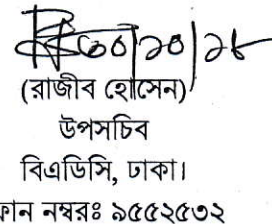 ৩০/১০/১৮
(রাজীব হোসেন)
উপসচিব
বিএডিসি, ঢাকা।
ফোন নম্বরঃ ৯৫৫২৫৩২